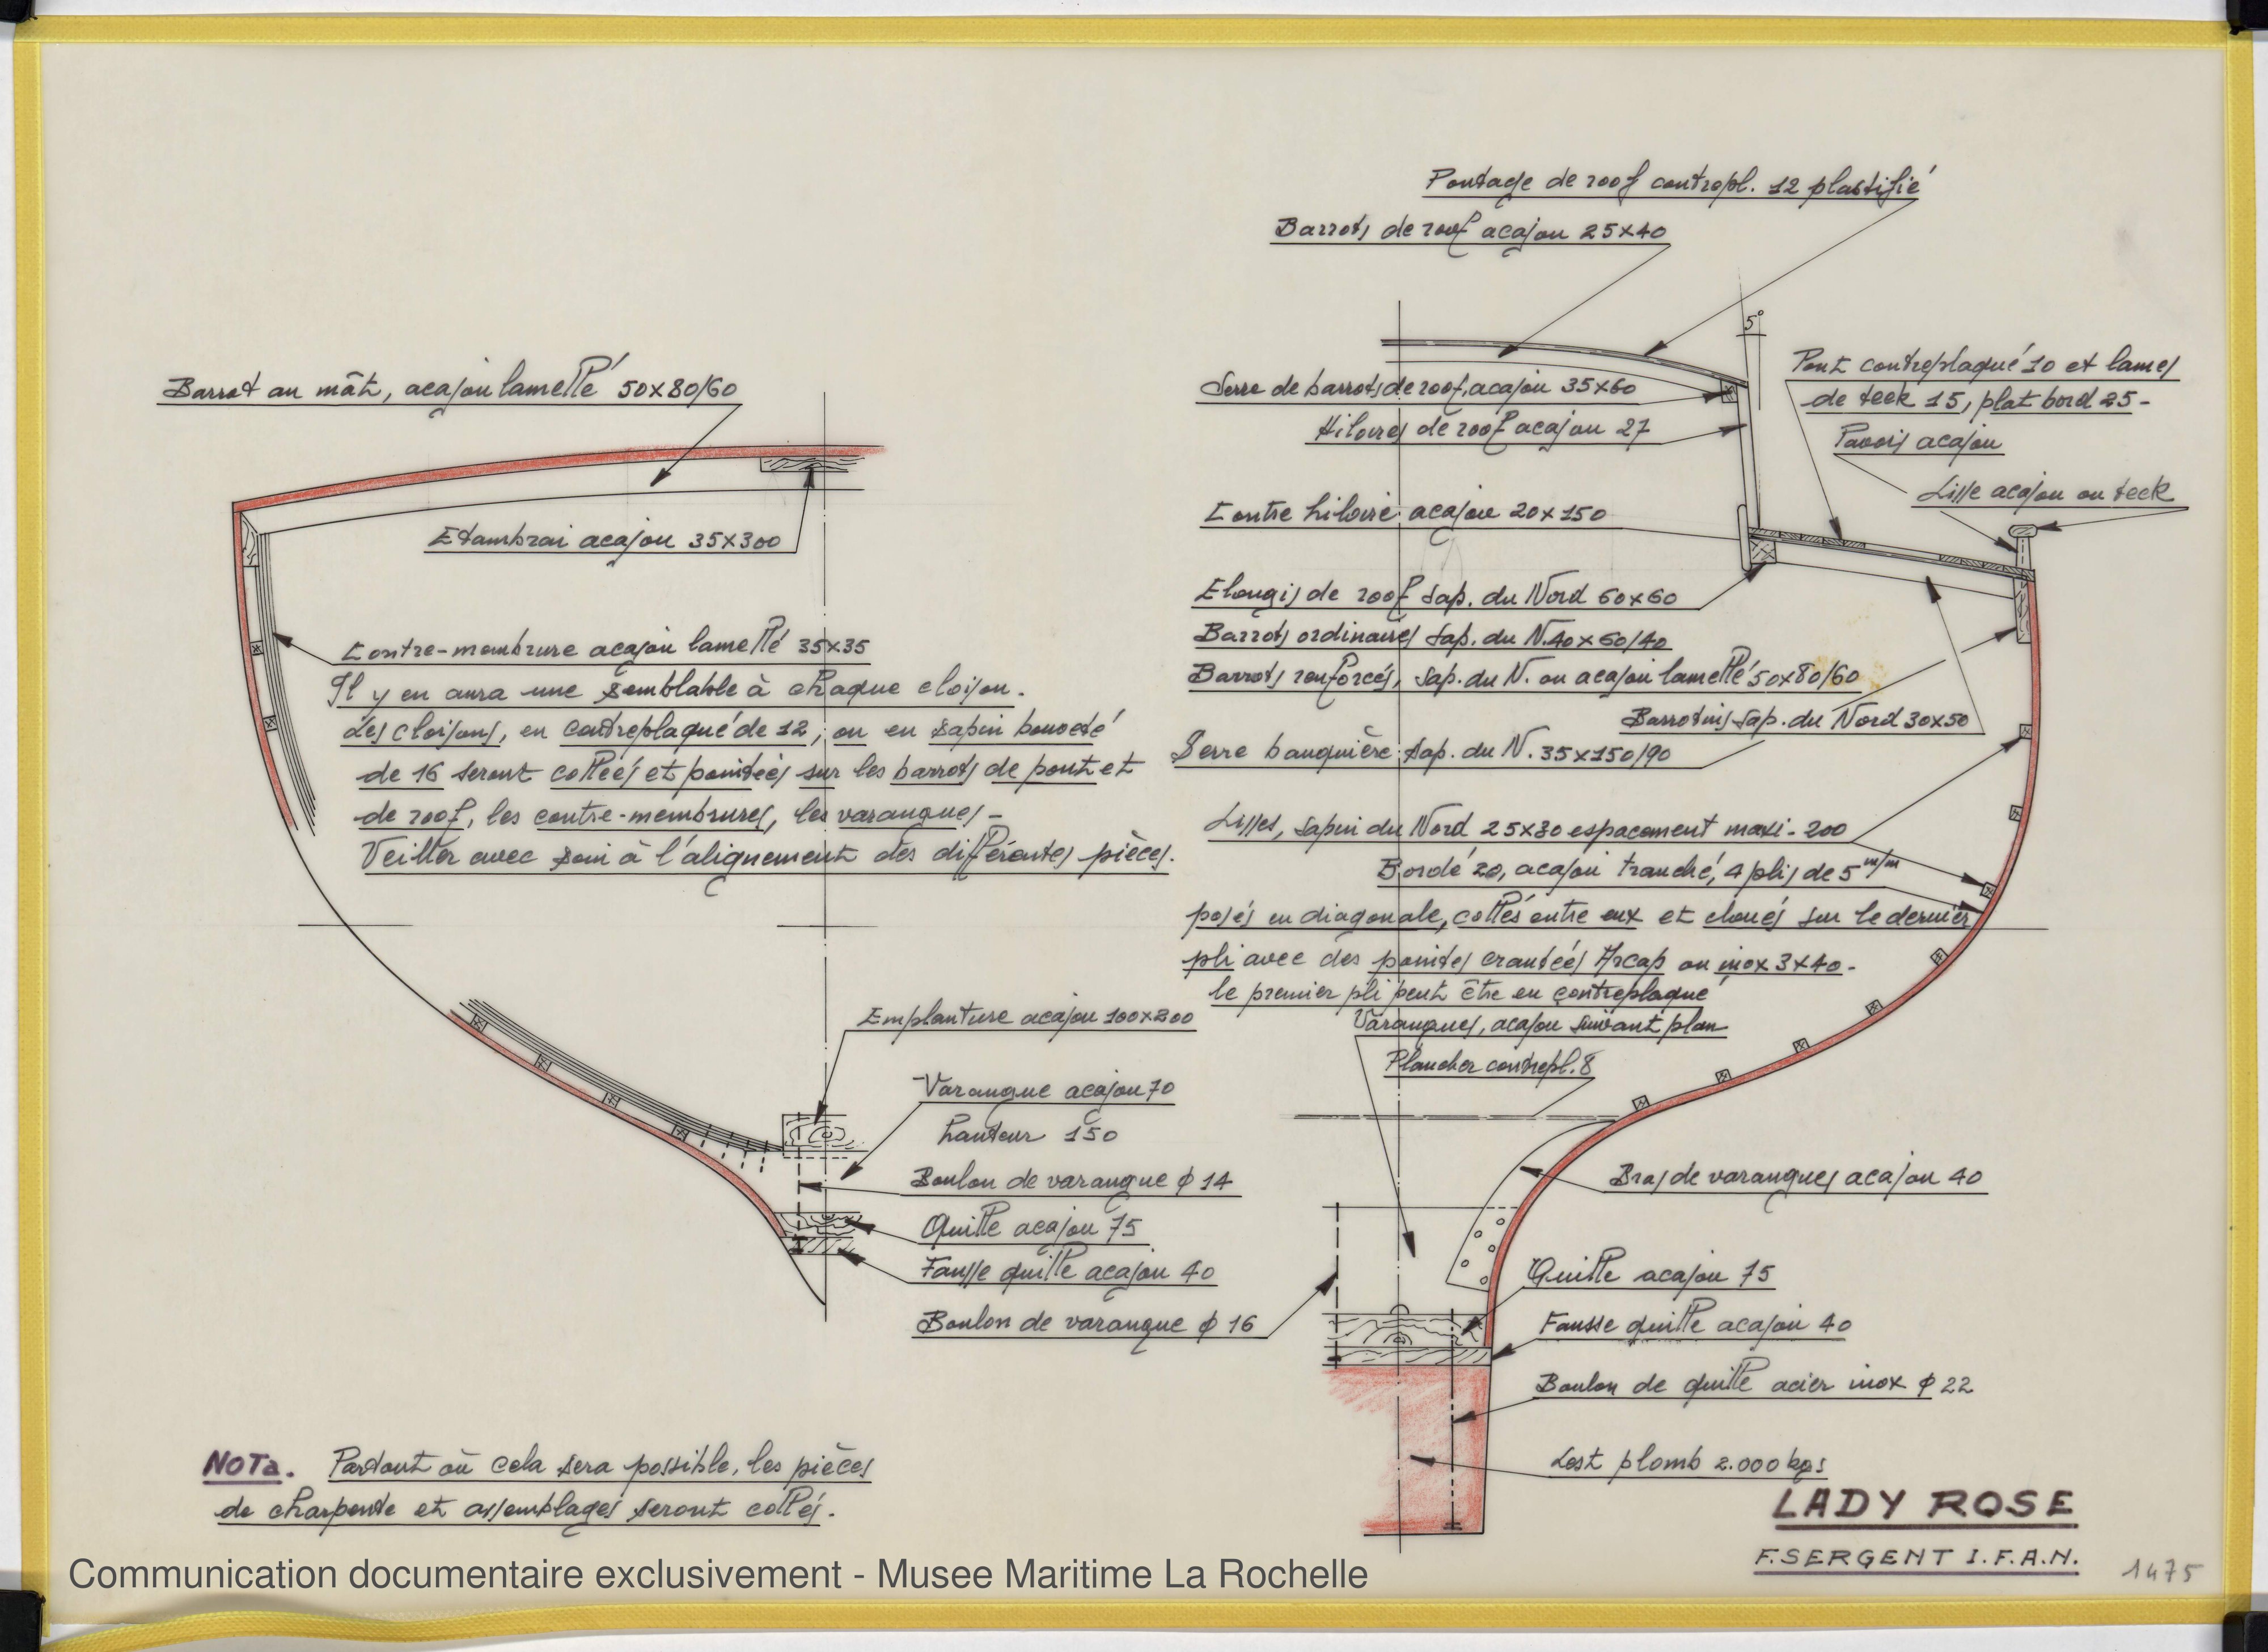 Pontage de roof contrepl. 12 plastifié
Barrots de roof acajou 25x40
5°
Serre de barrots de roof, acajou 35x60
Hiloires de roof acajou 27
Pont contreplaqué 10 et lames
de teck 15, plat bord 25-
Pavois acajou
Lisse acajou ou teck
Contre hiloire acajou 20x150
Elongis de roof Sap. du Nord 60x60
Barrots ordinaires Sap. du N. 40x60/40
Barrots renforcés, Sap. du N. ou acajou lamellé 50x80/60
Barrotins Sap. du Nord 30x50
Serre bauquière Sap. du N. 35x150/90
Lisses, sapin du Nord 25x30 espacement maxi - 200
Bordé 20, acajou tranché, 4 plis de 5 m/m
posés en diagonale, collés entre eux et cloués sur le dernier
pli avec des pointes crantées Arcap ou inox 3x40-
le premier pli peut être en contreplaqué
Varangues, acajou suivant plan
Plancher contrepl. 8
Bras de varangues acajou 40
Quille acajou 75
Fausse quille acajou 40
Boulon de quille acier inox φ 22
Lest plomb 2.000 kgs
Barrot au mât, acajou lamellé 50x80/60
Etambrai acajou 35x300
Contre-membrure acajou lamellé 35x35
Il y en aura une semblable à chaque cloison.
Les cloisons, en contreplaqué de 12, ou en sapin bouveté
de 16 seront collées et pointées sur les barrots de pont et
de roof, les contre-membrures, les varangues-
Veiller avec soin à l'alignement des différentes pièces.
Emplanture acajou 100x200
Varangue acajou 70
hauteur 150
Boulon de varangue φ 14
Quille acajou 75
Fausse quille acajou 40
Boulon de varangue φ 16
NOTA. Partout où cela sera possible, les pièces
de charpente et assemblages seront collés.
LADY ROSE
F. SERGENT I.F.A.N.
1475
Communication documentaire exclusivement - Musee Maritime La Rochelle